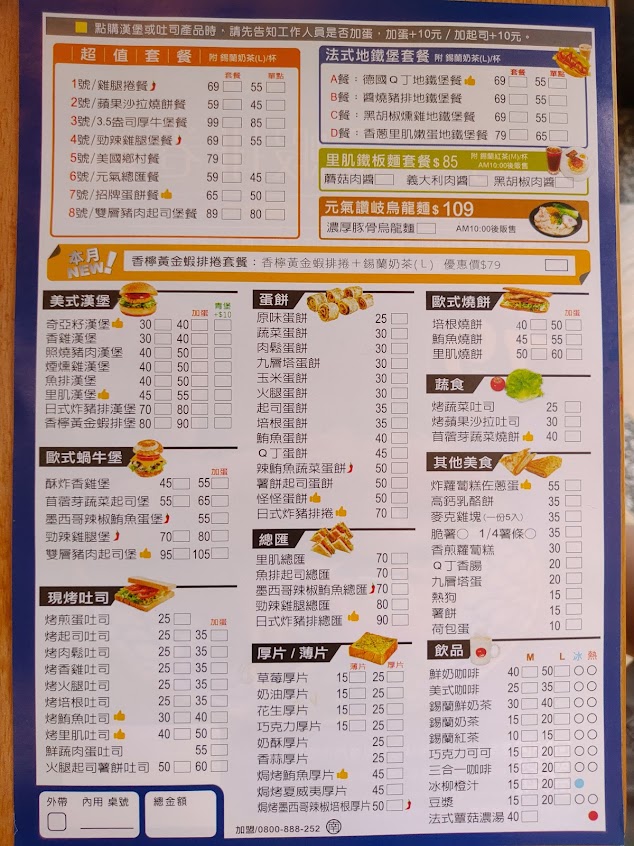 點購漢堡或吐司產品時，請先告知工作人員是否加蛋，加蛋+10元 / 加起司+10元。
超值套餐 附 錫蘭奶茶(L)/杯
套餐 單點
1號/雞腿捲餐 69 55
2號/蘋果沙拉燒餅餐 59 45
3號/3.5盎司厚牛堡餐 99 85
4號/勁辣雞腿堡餐 69 55
5號/美國鄉村餐 79
6號/元氣總匯餐 59 45
7號/招牌蛋餅餐 65 50
8號/雙層豬肉起司堡餐 89 80
法式地鐵堡套餐 附 錫蘭奶茶(L)/杯
套餐 單點
A餐：德國Q丁地鐵堡餐 69 55
B餐：醬燒豬排地鐵堡餐 69 55
C餐：黑胡椒燻雞地鐵堡餐 69 55
D餐：香蔥里肌嫩蛋地鐵堡餐 79 65
里肌鐵板麵套餐$85 附 錫蘭紅茶(M)/杯
AM10:00後販售
蘑菇肉醬 義大利肉醬 黑胡椒肉醬
元氣讚岐烏龍麵$109
濃厚豚骨烏龍麵 AM10:00後販售
本月NEW! 香檸黃金蝦排捲套餐：香檸黃金蝦排捲＋錫蘭奶茶(L) 優惠價$79
美式漢堡
加蛋 青堡+$10
奇亞籽漢堡 30 40
香雞漢堡 30 40
照燒豬肉漢堡 40 50
煙燻雞漢堡 40 50
魚排漢堡 40 50
里肌漢堡 45 55
日式炸豬排漢堡 70 80
香檸黃金蝦排堡 80 90
歐式蝸牛堡
加蛋
酥炸香雞堡 45 55
苜蓿芽蔬菜起司堡 55 65
墨西哥辣椒鮪魚蛋堡 55
勁辣雞腿堡 70 80
雙層豬肉起司堡 95 105
現烤吐司
加蛋
烤煎蛋吐司 25
烤起司吐司 25 35
烤肉鬆吐司 25 35
烤香雞吐司 25 35
烤火腿吐司 25 35
烤培根吐司 25 35
烤鮪魚吐司 30 40
烤里肌吐司 40 50
鮮蔬肉蛋吐司 55
火腿起司薯餅吐司 50 60
外帶 內用 桌號 總金額
蛋餅
原味蛋餅 25
蔬菜蛋餅 30
肉鬆蛋餅 30
九層塔蛋餅 30
玉米蛋餅 30
火腿蛋餅 30
起司蛋餅 35
培根蛋餅 35
鮪魚蛋餅 40
Q丁蛋餅 40
辣鮪魚蔬菜蛋餅 50
薯餅起司蛋餅 50
怪怪蛋餅 50
日式炸豬排捲 70
總匯
里肌總匯 70
魚排起司總匯 70
墨西哥辣椒鮪魚總匯 70
勁辣雞腿總匯 80
日式炸豬排總匯 90
厚片 / 薄片
薄片 厚片
草莓厚片 15 25
奶油厚片 15 25
花生厚片 15 25
巧克力厚片 15 25
奶酥厚片 25
香蒜厚片 25
焗烤鮪魚厚片 45
焗烤夏威夷厚片 45
焗烤墨西哥辣椒培根厚片 50
加盟/0800-888-252 南
歐式燒餅
加蛋
培根燒餅 40 50
鮪魚燒餅 45 55
里肌燒餅 50 60
蔬食
烤蔬菜吐司 25
烤蘋果沙拉吐司 30
苜蓿芽蔬菜燒餅 40
其他美食
炸蘿蔔糕佐蔥蛋 55
高鈣乳酪餅 35
麥克雞塊(一份5入) 35
脆薯 1/4薯條 35
香煎蘿蔔糕 30
Q丁香腸 20
九層塔蛋 20
熱狗 15
薯餅 15
荷包蛋 10
飲品
M L 冰 熱
鮮奶咖啡 40 50
美式咖啡 25 35
錫蘭鮮奶茶 30 40
錫蘭奶茶 15 20
錫蘭紅茶 10 15
巧克力可可 15 20
三合一咖啡 15 20
冰柳橙汁 15 20
豆漿 15 20
法式蘑菇濃湯 40